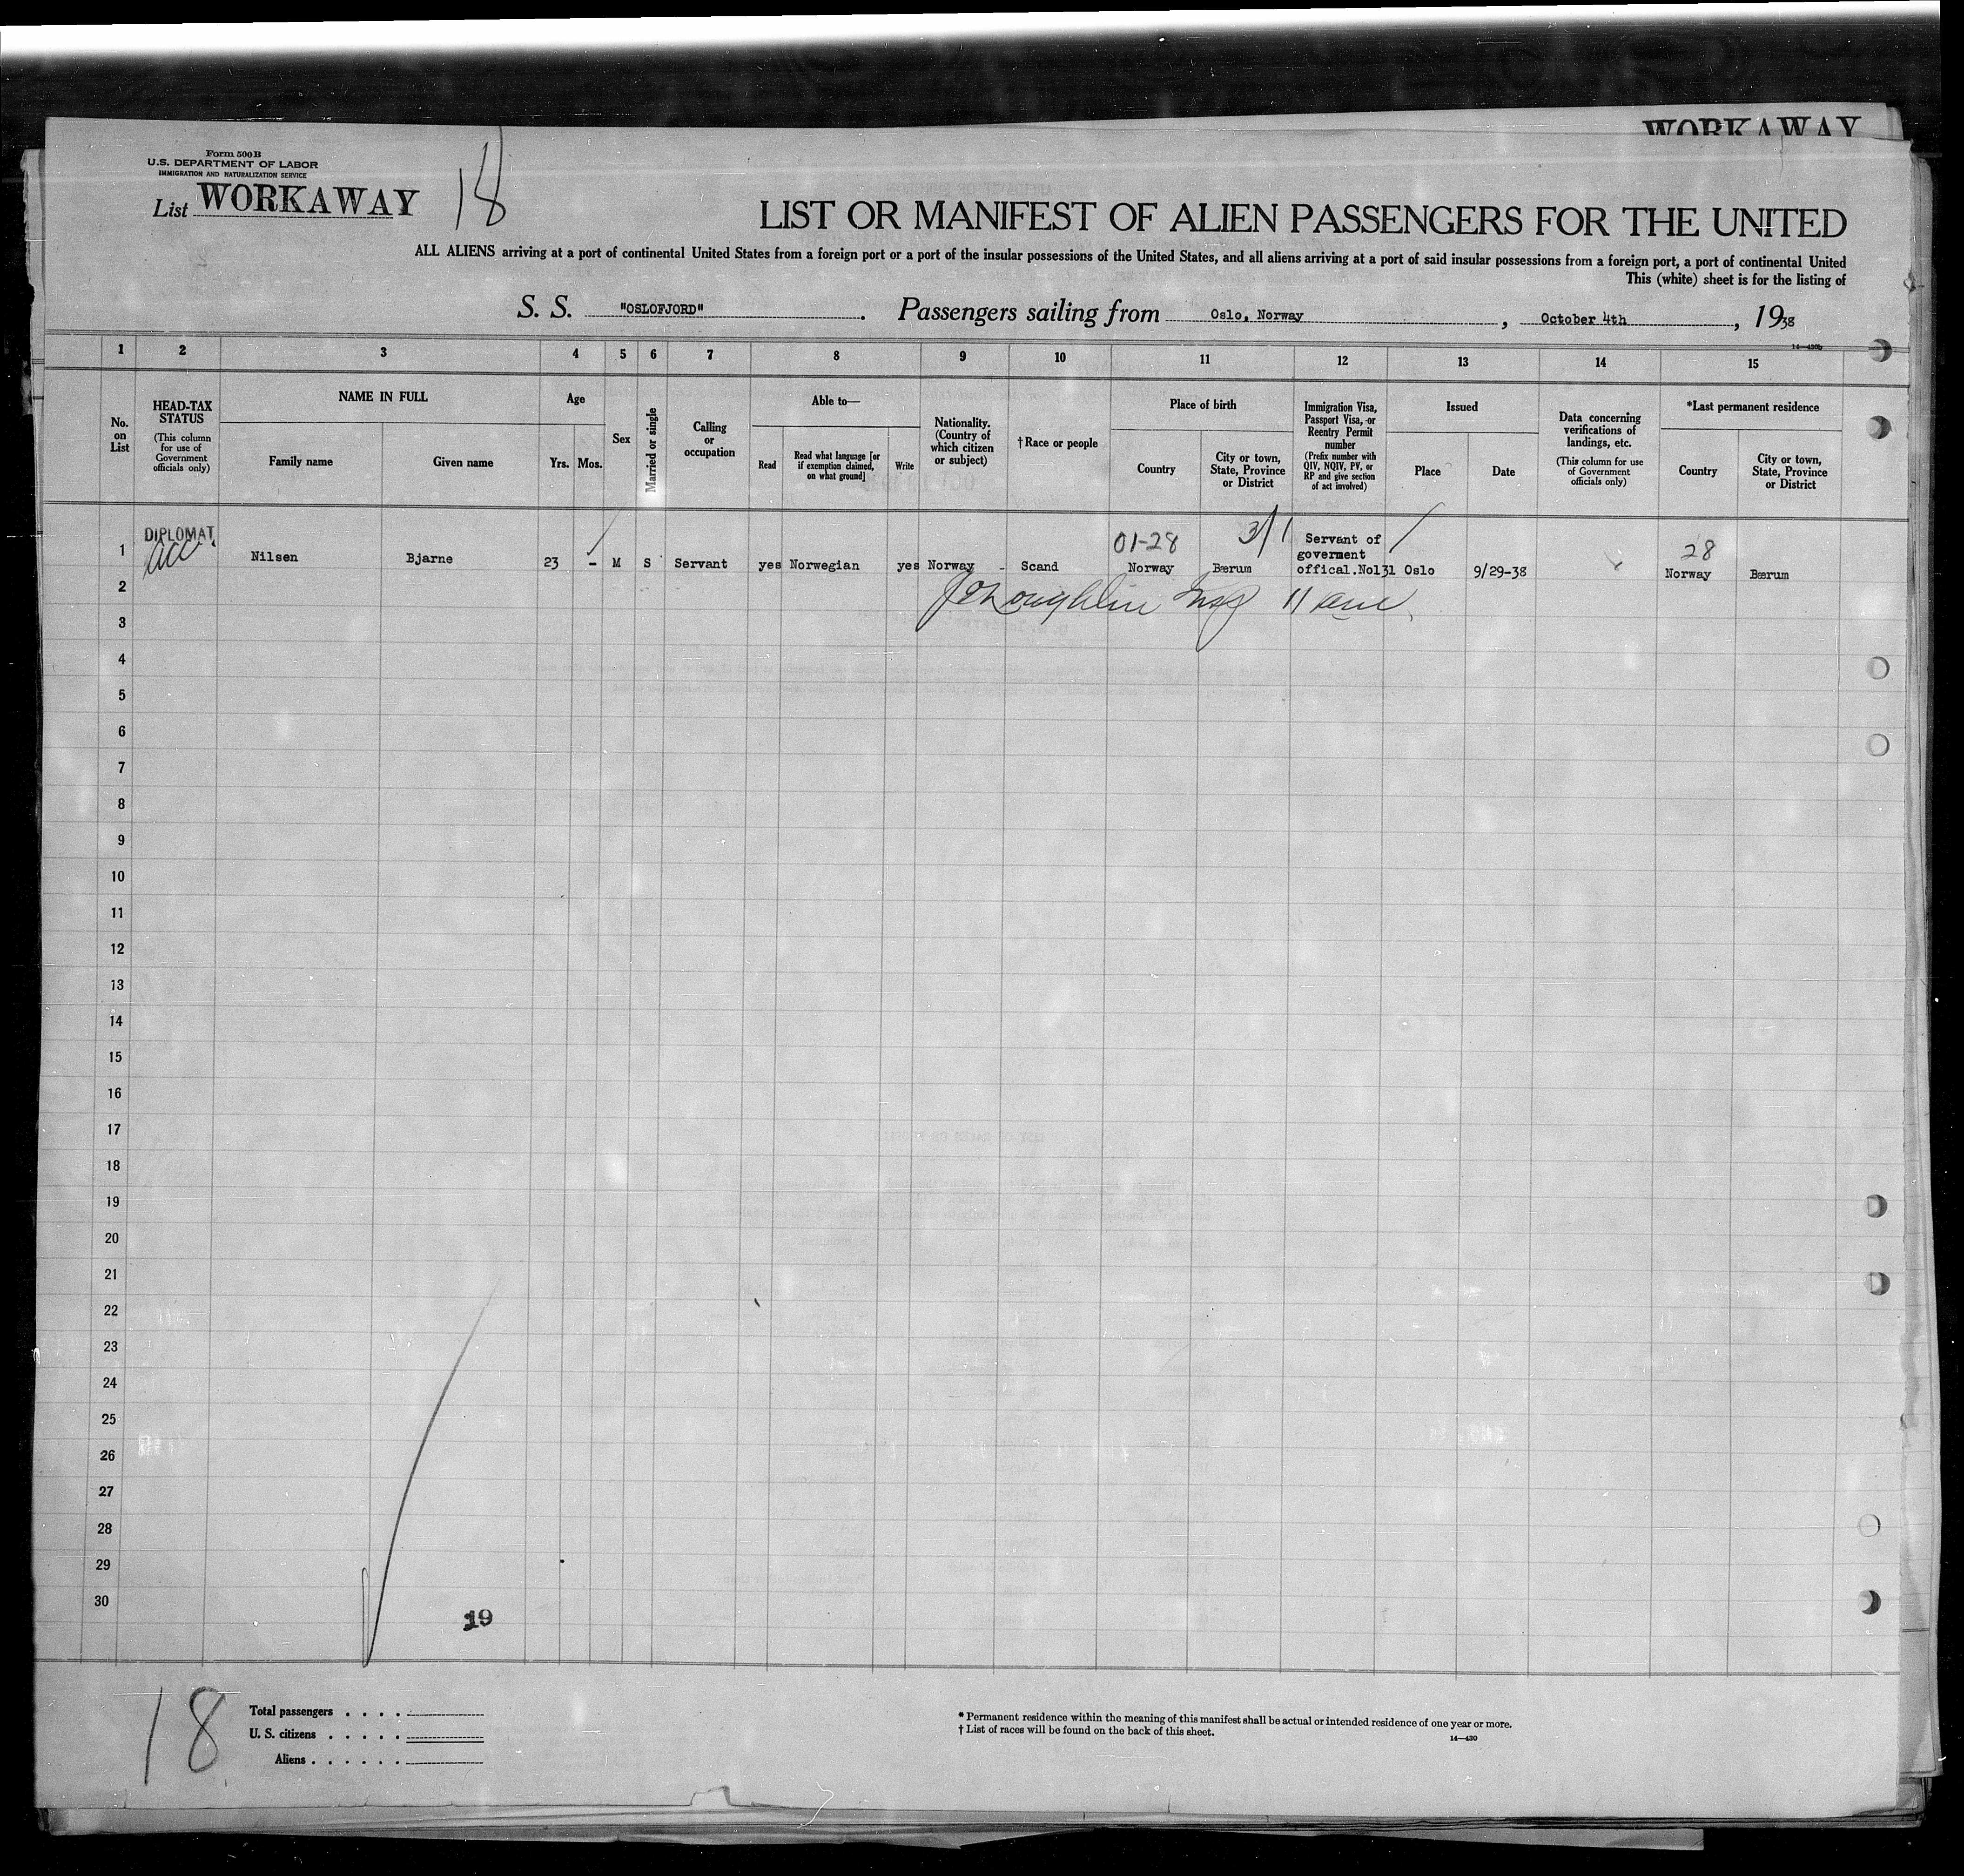 WORKAWAY
Form 500B
U.S. DEPARTMENT OF LABOR
IMMIGRATION AND NATURALIZATION SERVICE
List WORKAWAY 18
LIST OR MANIFEST OF ALIEN PASSENGERS FOR THE UNITED
ALL ALIENS arriving at a port of continental United States from a foreign port or a port of the insular possessions of the United States, and all aliens arriving at a port of said insular possessions from a foreign port, a port of continental United
This (white) sheet is for the listing of
S. S. "OSLOFJORD" . Passengers sailing from Oslo, Norway , October 4th , 1938
14—430b
1 2 3 4 5 6 7 8 9 10 11 12 13 14 15
No. on List
HEAD-TAX STATUS
(This column for use of Government officials only)
NAME IN FULL
Family name
Given name
Age
Yrs. Mos.
Sex
Married or single
Calling or occupation
Able to—
Read
Read what language [or if exemption claimed, on what ground]
Write
Nationality. (Country of which citizen or subject)
† Race or people
Place of birth
Country
City or town, State, Province or District
Immigration Visa, Passport Visa, or Reentry Permit number
(Prefix number with QIV, NQIV, PV, or RP and give section of act involved)
Issued
Place
Date
Data concerning verifications of landings, etc.
(This column for use of Government officials only)
*Last permanent residence
Country
City or town, State, Province or District
DIPLOMAT.
01-28 3/1 Servant of
goverment 28
1 Nilsen Bjarne 23 - M S Servant yes Norwegian yes Norway - Scand Norway Bærum offical.No131 Oslo 9/29-38 Norway Bærum
2
3
4
5
6
7
8
9
10
11
12
13
14
15
16
17
18
19
20
21
22
23
24
25
26
27
28
29
30
19
18
Total passengers . . . .
U. S. citizens . . . . .
Aliens . . . . . .
* Permanent residence within the meaning of this manifest shall be actual or intended residence of one year or more.
† List of races will be found on the back of this sheet.
14—430